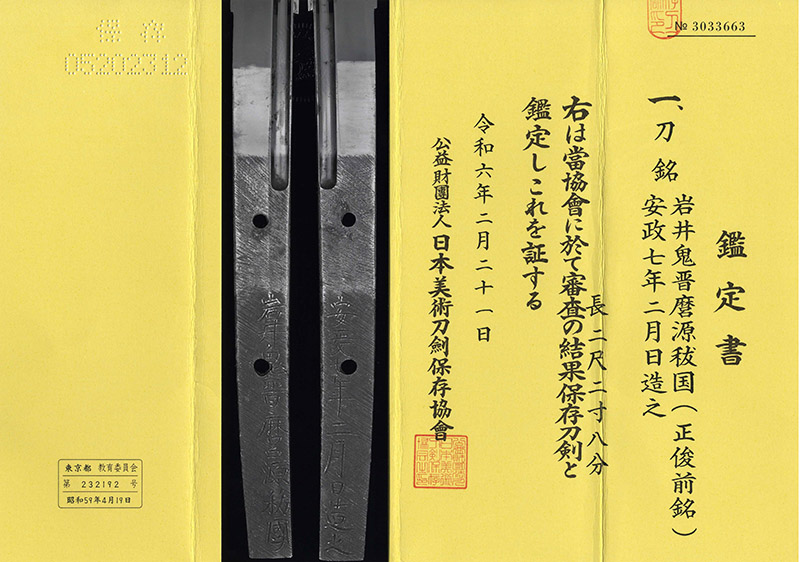 № 3033663
鑑定書
一、刀 銘 岩井鬼晋麿源秡国(正俊前銘)
安政七年二月日造之
長二尺二寸八分
右は當協會に於て審査の結果保存刀剣と
鑑定しこれを証する
令和六年二月二十一日
公益財團法人 日本美術刀劍保存協會
保存
05202312
岩井鬼晋麿源秡國
安政七年二月日造之
東京都 教育委員会
第 232192 号
昭和59年4月19日